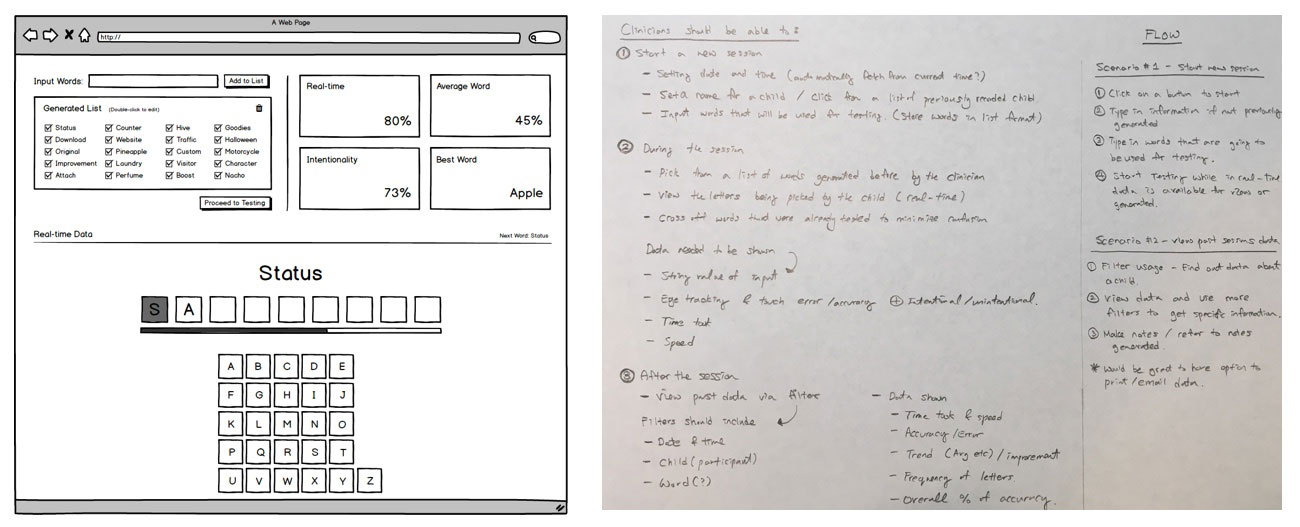 A Web Page
http://
Input Words:
Add to List
Generated List (Double-click to edit)
Status Counter Hive Goodies
Download Website Traffic Halloween
Original Pineapple Custom Motorcycle
Improvement Laundry Visitor Character
Attach Perfume Boost Nacho
Proceed to Testing
Real-time
80%
Average Word
45%
Intentionality
73%
Best Word
Apple
Real-time Data
Next Word: Status
Status
S A
A B C D E
F G H I J
K L M N O
P Q R S T
U V W X Y Z
Clinicians should be able to:
① Start a new session
- Setting date and time (automatically fetch from current time?)
- Set a name for a child / Click from a list of previously recorded child
- Input words that will be used for testing. (Store words in list format)
② During the session
- Pick from a list of words generated before by the clinician
- View the letters being picked by the child (real-time)
- Cross off words that were already tested to minimize confusion
Data needed to be shown
- String value of input
- Eye tracking & touch error/accuracy ⊕ Intentional/unintentional.
- Time took
- Speed
③ After the session
- View past data via filters
Filters should include
- Date & time
- Child (participant)
- Word (?)
- Data shown
- Time took & speed
- Accuracy/Error
- Trend (Avg etc)/improvement
- Frequency of letters.
- Overall % of accuracy.
FLOW
Scenario #1 - Start new session
① Click on a button to start
② Type in information if not previously
generated
③ Type in words that are going to
be used for testing.
④ Start Testing while in real-time
data is available for view or
generated.
Scenario #2 - View past sessions data
① Filter usage - Find out data about
a child.
② View data and use more
filters to get specific information.
③ Make notes / refer to notes
generated.
* Would be great to have option to
print/email data.